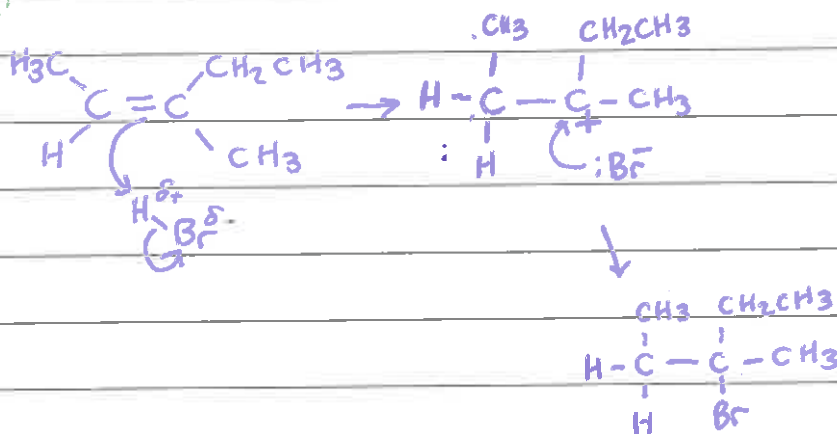 H3C CH2CH3
C=C
H CH3
Hδ+
Brδ-
→
CH3 CH2CH3
H-C-C-CH3
+
H :Br-
↓
CH3 CH2CH3
H-C-C-CH3
H Br